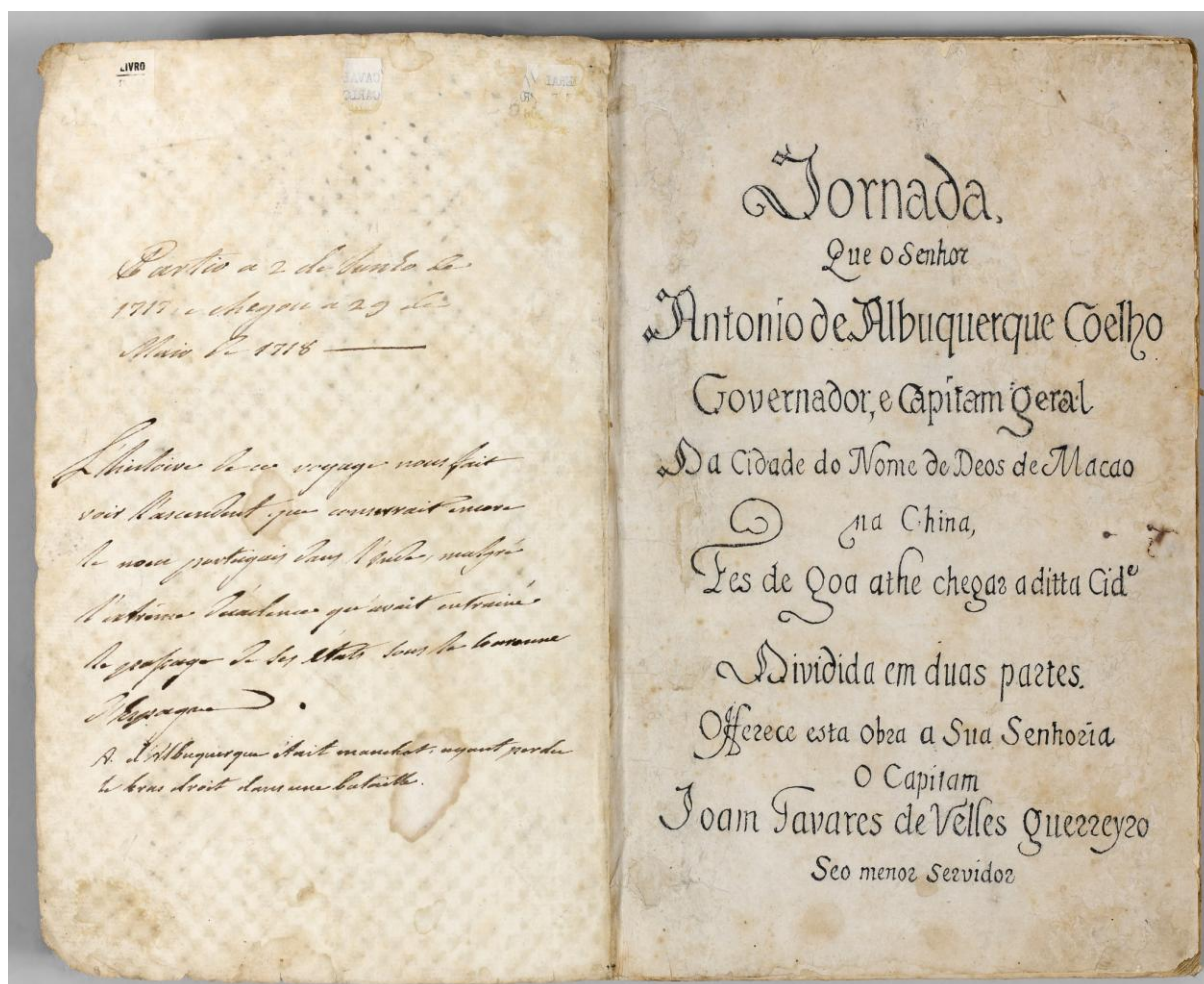 LIVRO
Partio a 2 de Junho de
1717 e chegou a 29 de
Maio de 1718
L'histoire de ce voyage nous fait
voir l'ascendent que conservait encore
le nom portugais dans l'Inde, malgré
l'extrème décadence qu'avait entrainé
le passage de ses états sous la couronne
d'Espagne.
A. d'Albuquerque était manchot, ayant perdu
le bras droit dans une bataille.
Jornada,
Que o Senhor
Antonio de Albuquerque Coelho
Governador, e Capitam geral
Da Cidade do Nome de Deos de Macao
na China,
Fes de Goa athe chegar a ditta Cidᵉ
Dividida em duas partes.
Offerece esta obra a Sua Senhoria
O Capitam
Joam Tavares de Velles Guerreyro
Seo menor Servidor